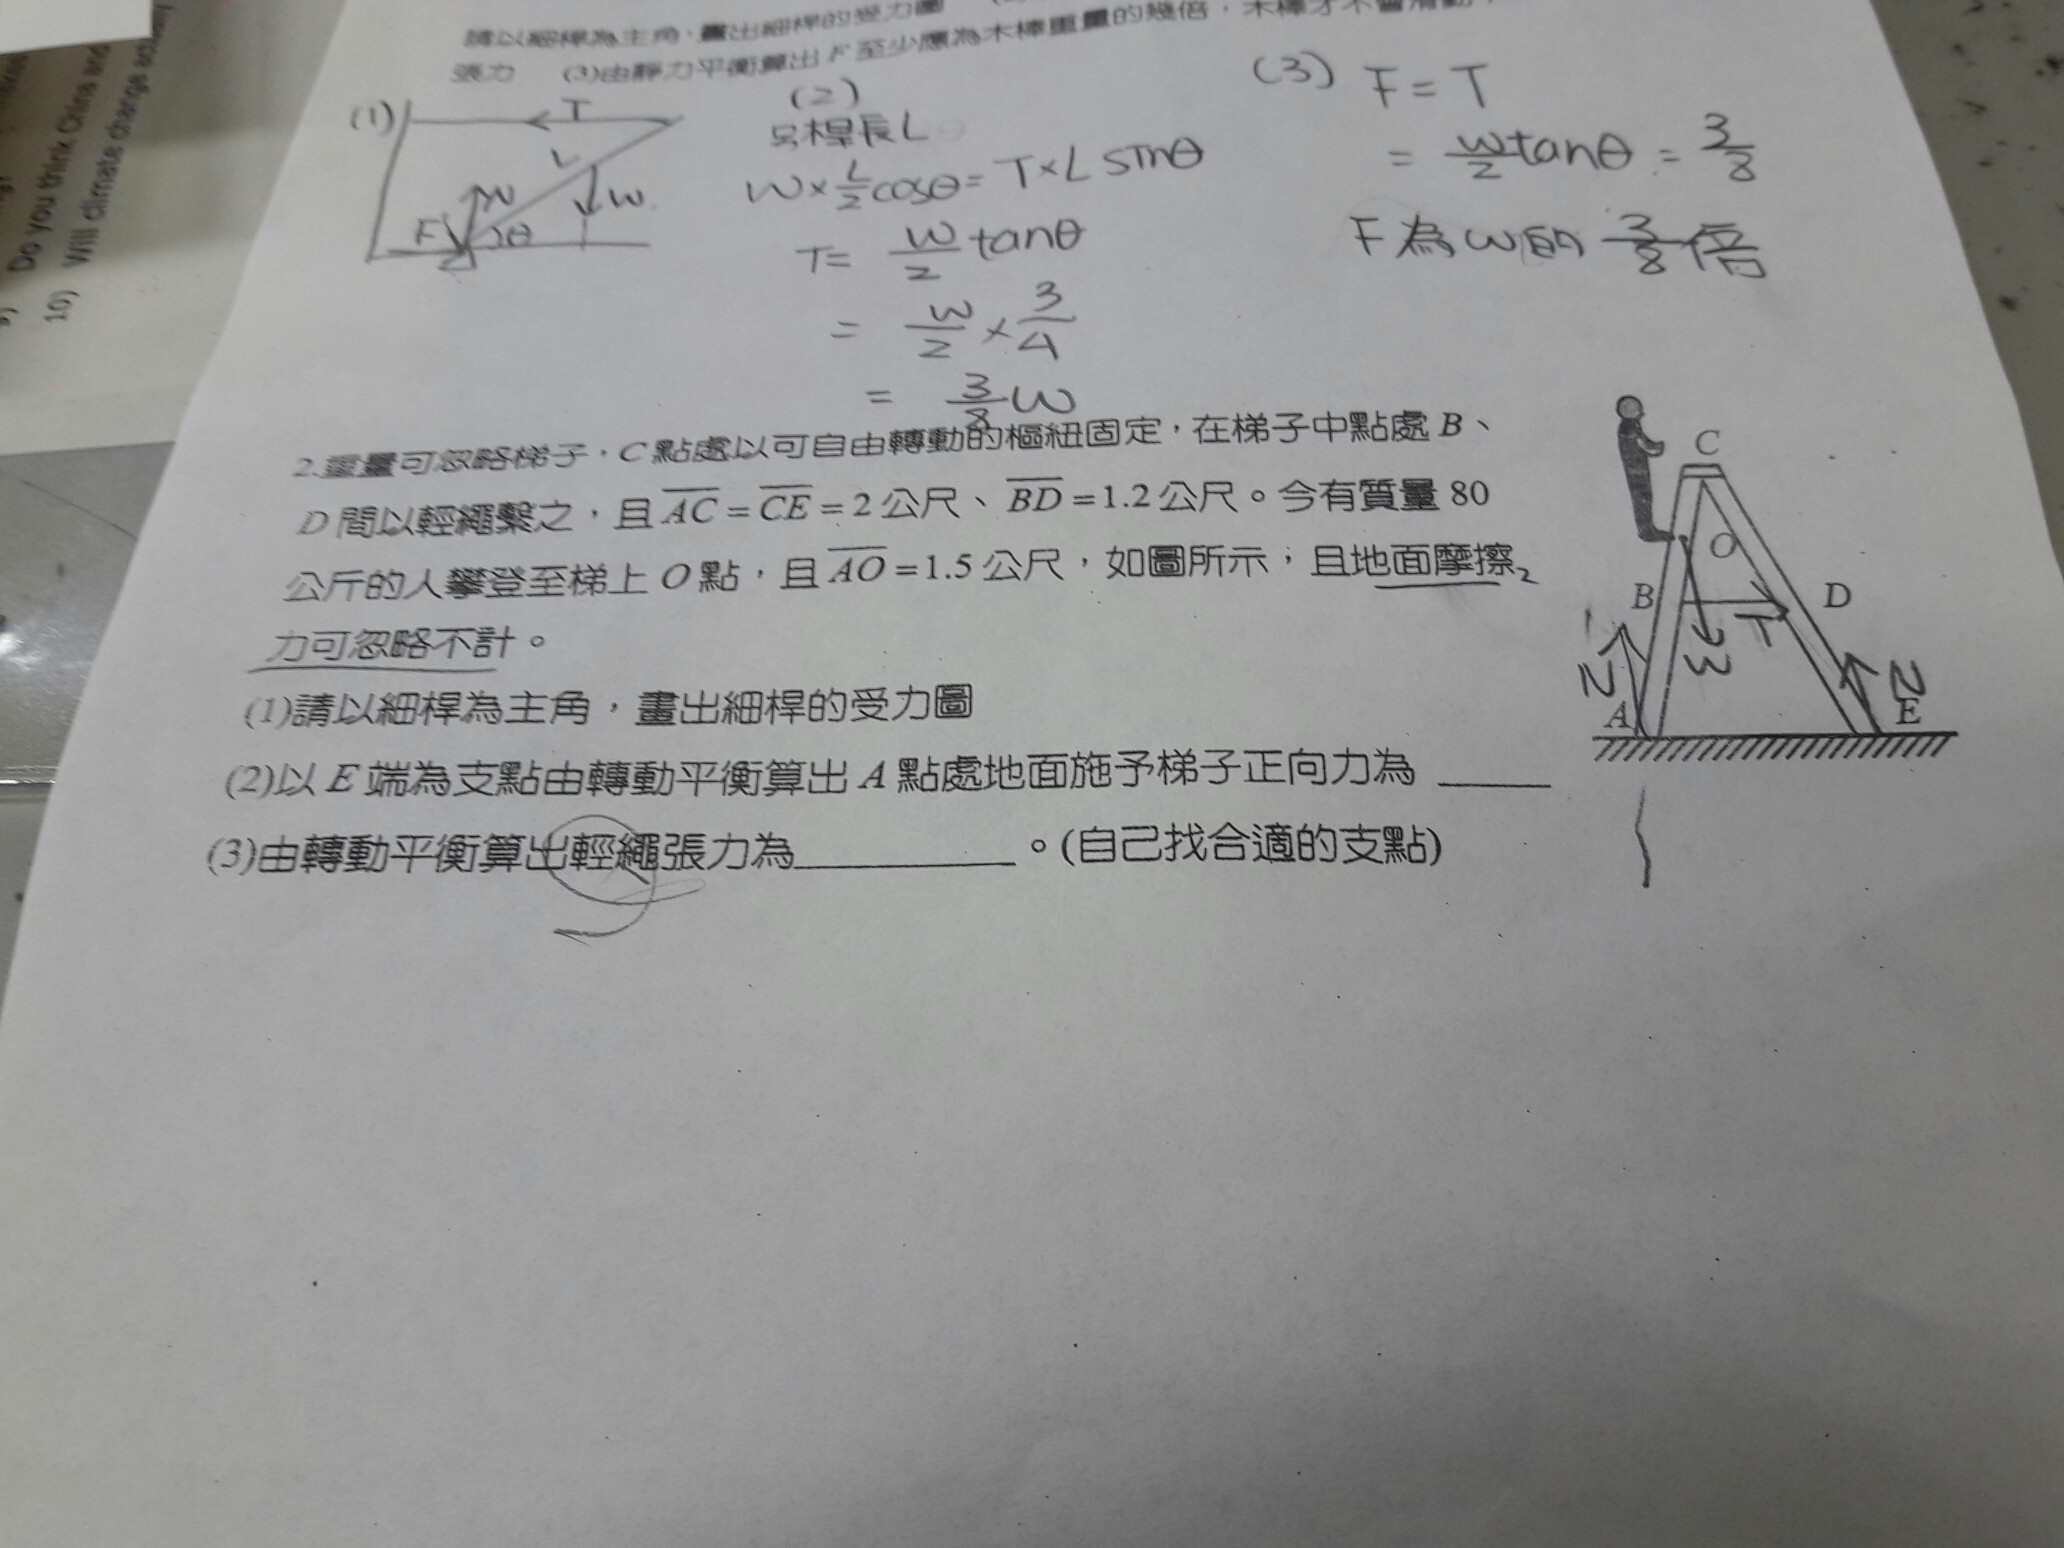 Do you think China and
10) Will climate change
請以細桿為主角，畫出細桿的受力圖
張力 (3)由靜力平衡算出 F 至少應為木棒重量的幾倍，木棒才不會滑動
(1)
T
L
N
W
F
θ
(2)
另桿長L
W×L/2cosθ=T×L sinθ
T= W/2 tanθ
= W/2 × 3/4
= 3/8 W
(3) F=T
= W/2 tanθ = 3/8
F為W的 3/8 倍
2.重量可忽略梯子，C 點處以可自由轉動的樞紐固定，在梯子中點處 B、
D 間以輕繩繫之，且 AC = CE = 2 公尺、BD = 1.2 公尺。今有質量 80
公斤的人攀登至梯上 O 點，且 AO = 1.5 公尺，如圖所示；且地面摩擦
力可忽略不計。
(1)請以細桿為主角，畫出細桿的受力圖
(2)以 E 端為支點由轉動平衡算出 A 點處地面施予梯子正向力為 ____
(3)由轉動平衡算出輕繩張力為________。(自己找合適的支點)
C
O
B
D
T
W
N
N
A
E